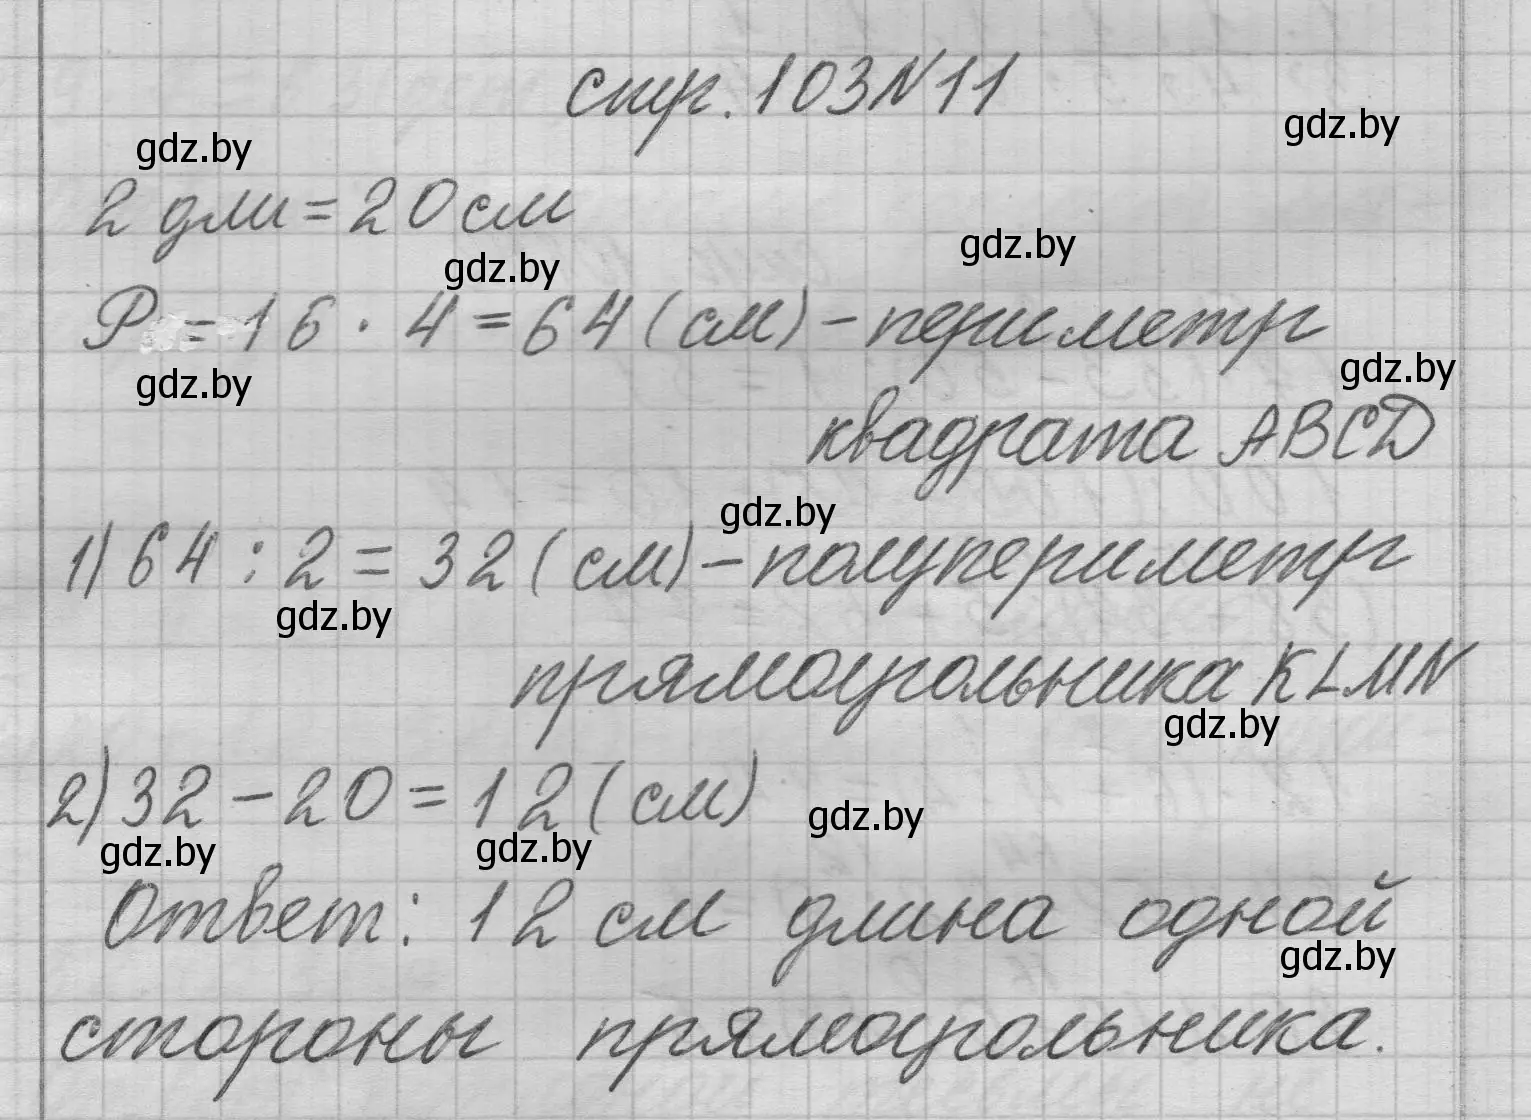 стр. 103 N 11
gdz.by
gdz.by
2 дм = 20 см
gdz.by
gdz.by
P = 16 · 4 = 64 (см) - периметр
gdz.by
gdz.by
квадрата ABCD
gdz.by
1) 64 : 2 = 32 (см) - полупериметр
gdz.by
прямоугольника KLMN
gdz.by
2) 32 - 20 = 12 (см)
gdz.by
gdz.by
gdz.by
Ответ: 12 см длина одной
gdz.by
стороны прямоугольника.